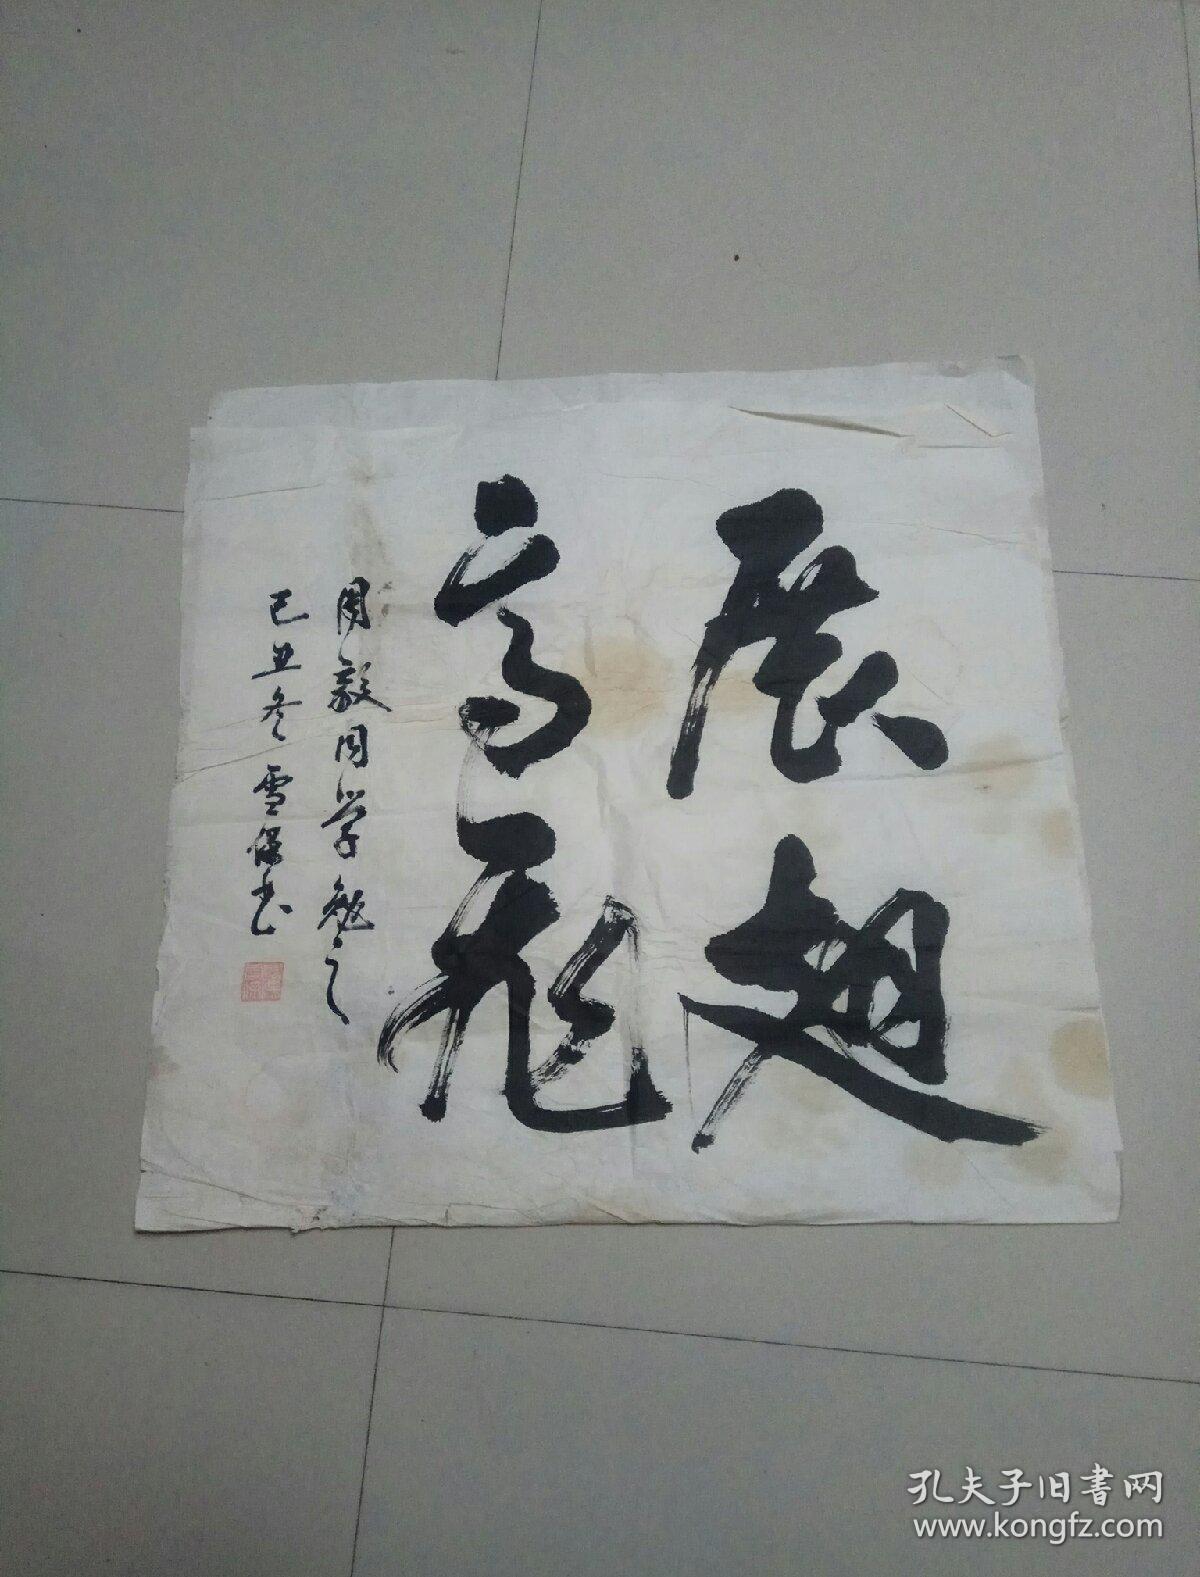 展翅
高飛
周毅同学勉之
己丑冬雪保书
孔夫子旧書网
www.kongfz.com